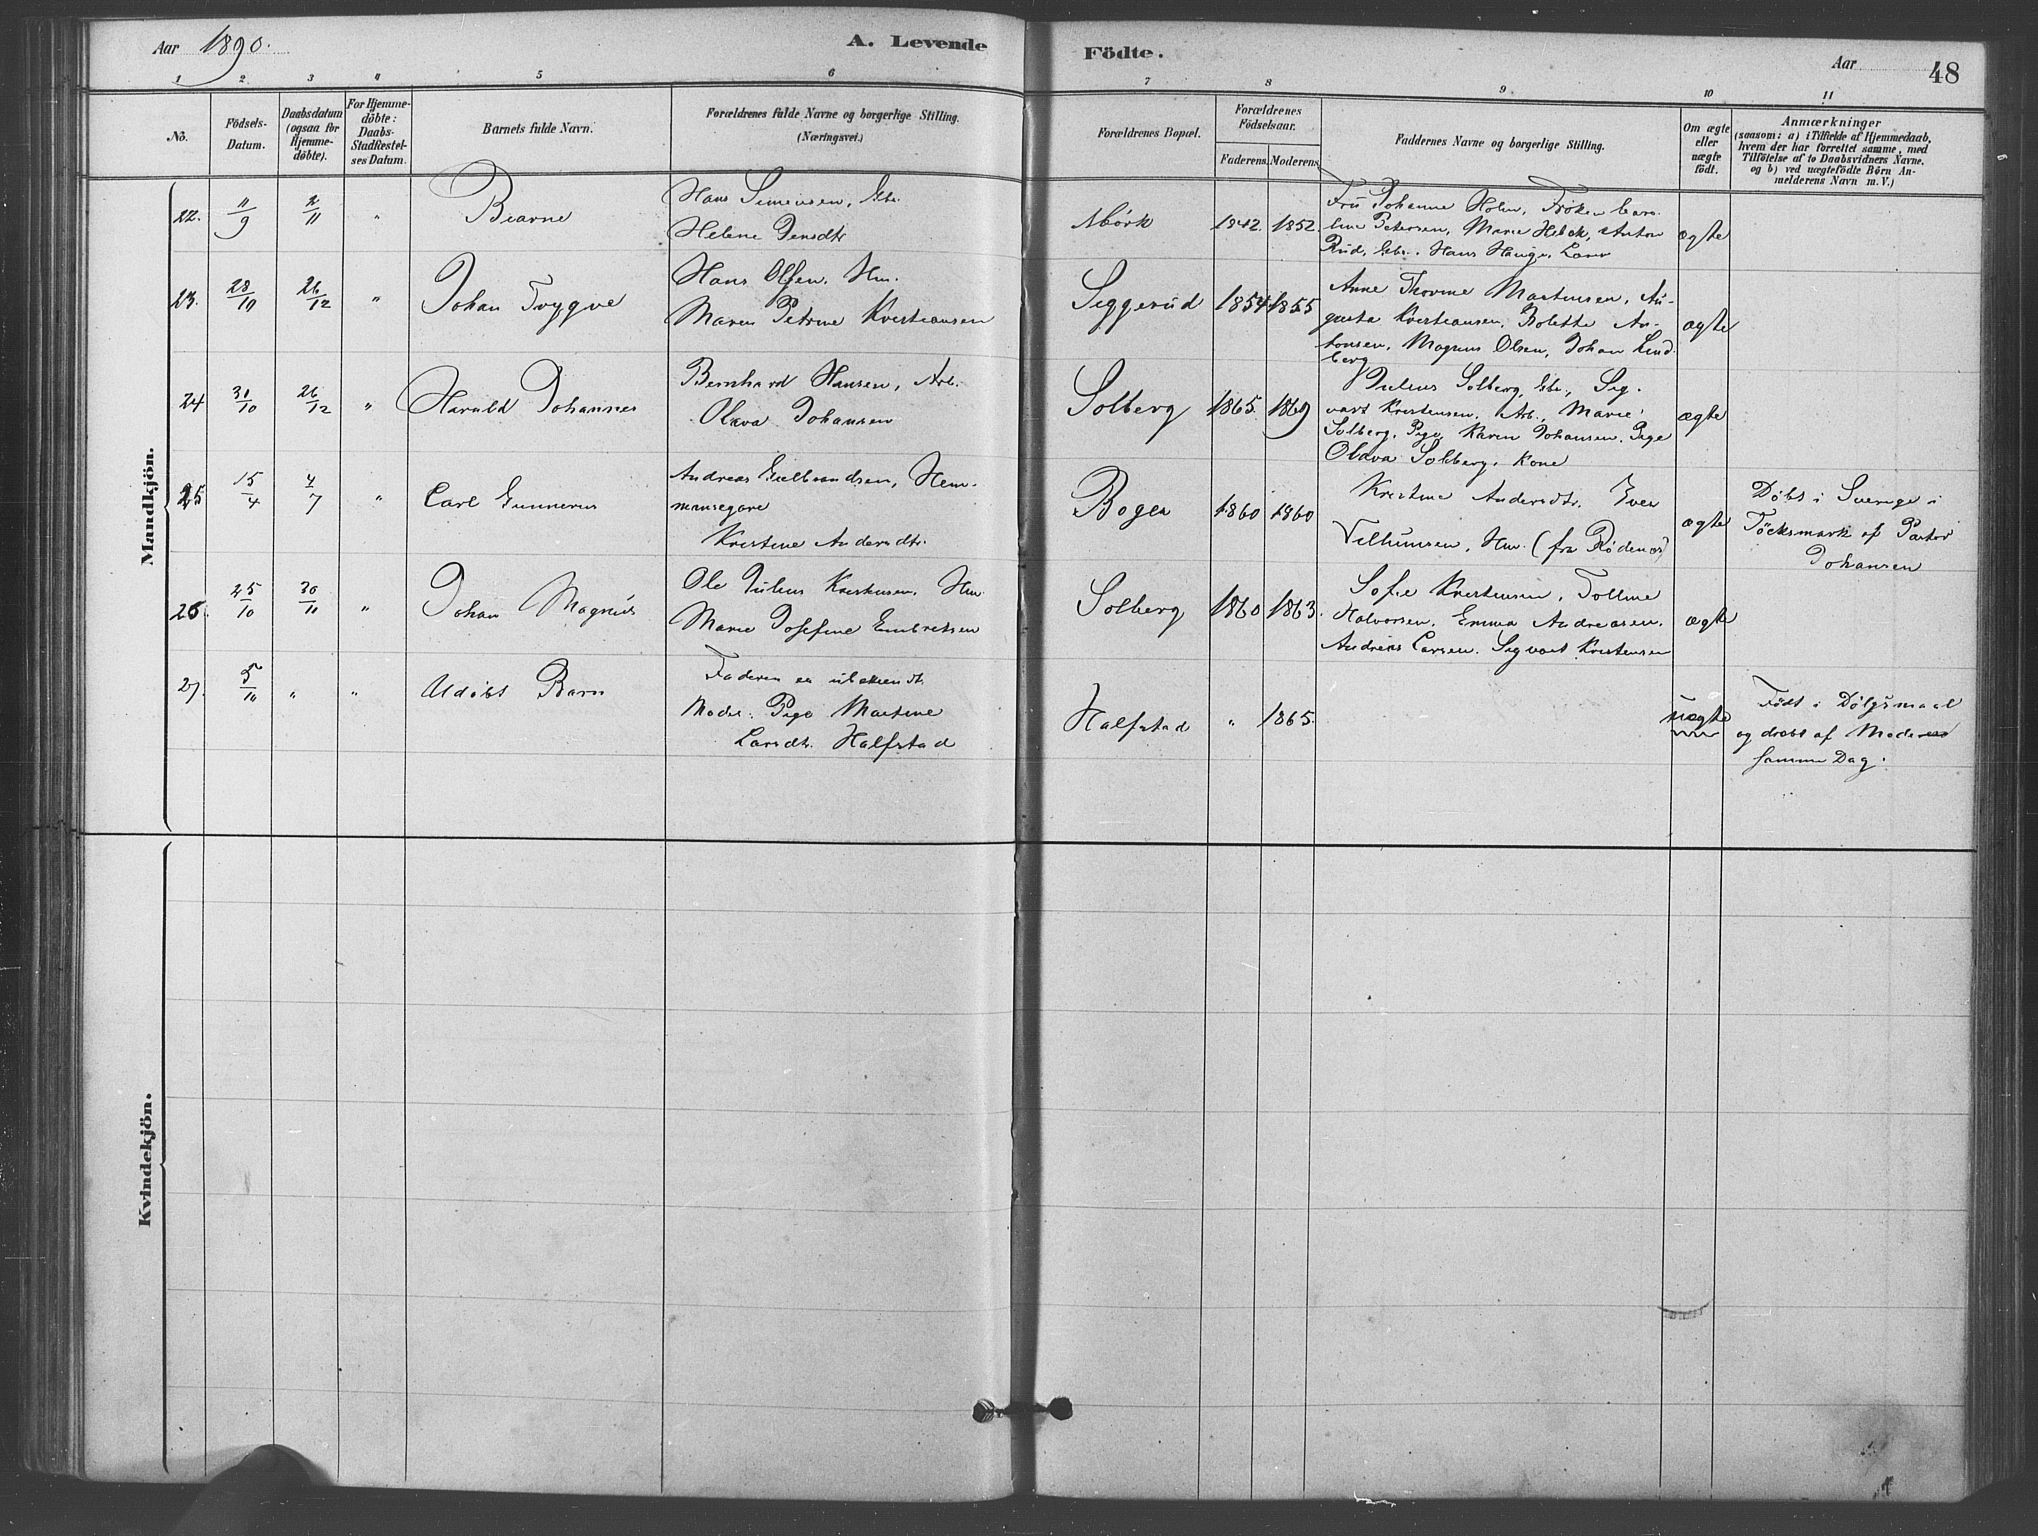 Aar 1890.
A. Levende
Födte.
Aar
48
1 2 3 4 5 6 7 8 9 10 11
No.
Födsels-
Datum.
Daabsdatum
(ogsaa for
Hjemme-
døbte).
For Hjemme-
døbte:
Daabs-
Stadfæstel-
ses Datum.
Barnets fulde Navn.
Forældrenes fulde Navne og borgerlige Stilling.
(Næringsvei.)
Forældrenes Bopæl.
Forældrenes
Födselsaar.
Faderens. Moderens.
Faddernes Navne og borgerlige Stilling.
Om ægte
eller
uægte
födt.
Anmærkninger
(saasom: a) i Tilfælde af Hjemmedaab,
hvem der har forrettet samme, med
Tilföielse af to Daabsvidners Navne.
og b) ved uægtefödte Börn An-
melderens Navn m. V.)
Mandkjön.
22. 11/9 2/11 "
Bjarne
Hans Simensen, Gbr.
Helene Jensdtr
Mörk
1842. 1852.
Fru Johanne Holm, Frøken Caro-
line Petersen, Marie Hebek, Anton
Rud, Gbr. Hans Hauge,
ægte
23. 28/10 26/12 "
Johan Trygve
Hans Olsen. Hm.
Maren Petrine Kristiansen
Siggerud
1854 1855
Anne Thorine Martinsen, Au-
gusta Kristiansen, Bolette An-
tonsen, Magnus Olsen, Johan Lind-
berg
ægte
24 31/10 26/12 "
Harald Johannes
Bernhard Hansen, Arb.
Olava Johansen
Solberg
1865. 1869
Julius Solberg, Gbr., Sig-
vart Kristensen, Arb., Marie
Solberg, Pige, Karen Johansen, Pige
Olava Solberg, Kone
ægte
25 15/4 4/7 "
Carl Gunnerus
Andreas Gulbrandsen, Hem-
mansegare
Kristine Andersdtr.
Bogen
1860 1860
Kristine Andersdtr. Iver
Vilhumsen, Hm. (fra Rødenes)
ægte
Døbt i Sverige i
Töcksmark af Pastor
Johansen
26. 25/10 30/11 "
Johan Magnus
Ole Julius Kristensen. Hm.
Marie Josefine Embretsen
Solberg
1860 1863.
Sofie Kristensen, Tolline
Halvorsen, Emma Andreasen,
Andreas Larsen. Sigvart Kristensen
ægte
27. 5/11 " "
Udøbt Barn
Faderen er ubekiendt.
Moder. Pige Martine
Larsdtr. Halfstad
Halfstad
" 1865.
uægte
Født i Dølgsmaal
og dræbt af Moderen
samme Dag.
Kvindekjön.